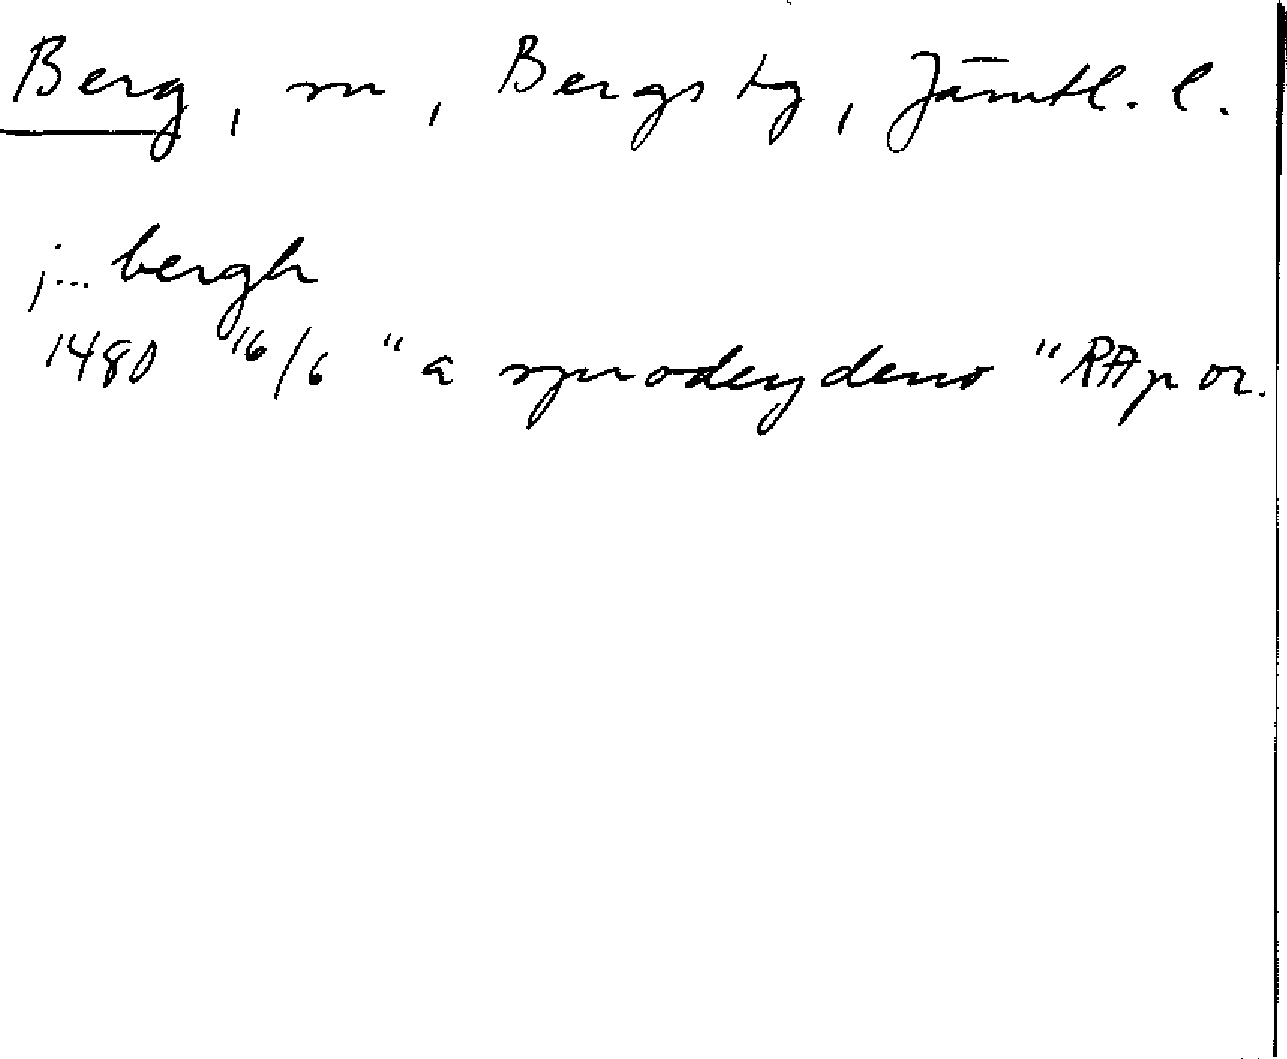 Berg, sn, Bergs tg, Jämtl. l.
j... bergh
1480 16/6 "a sprodeydeno" RAp or.